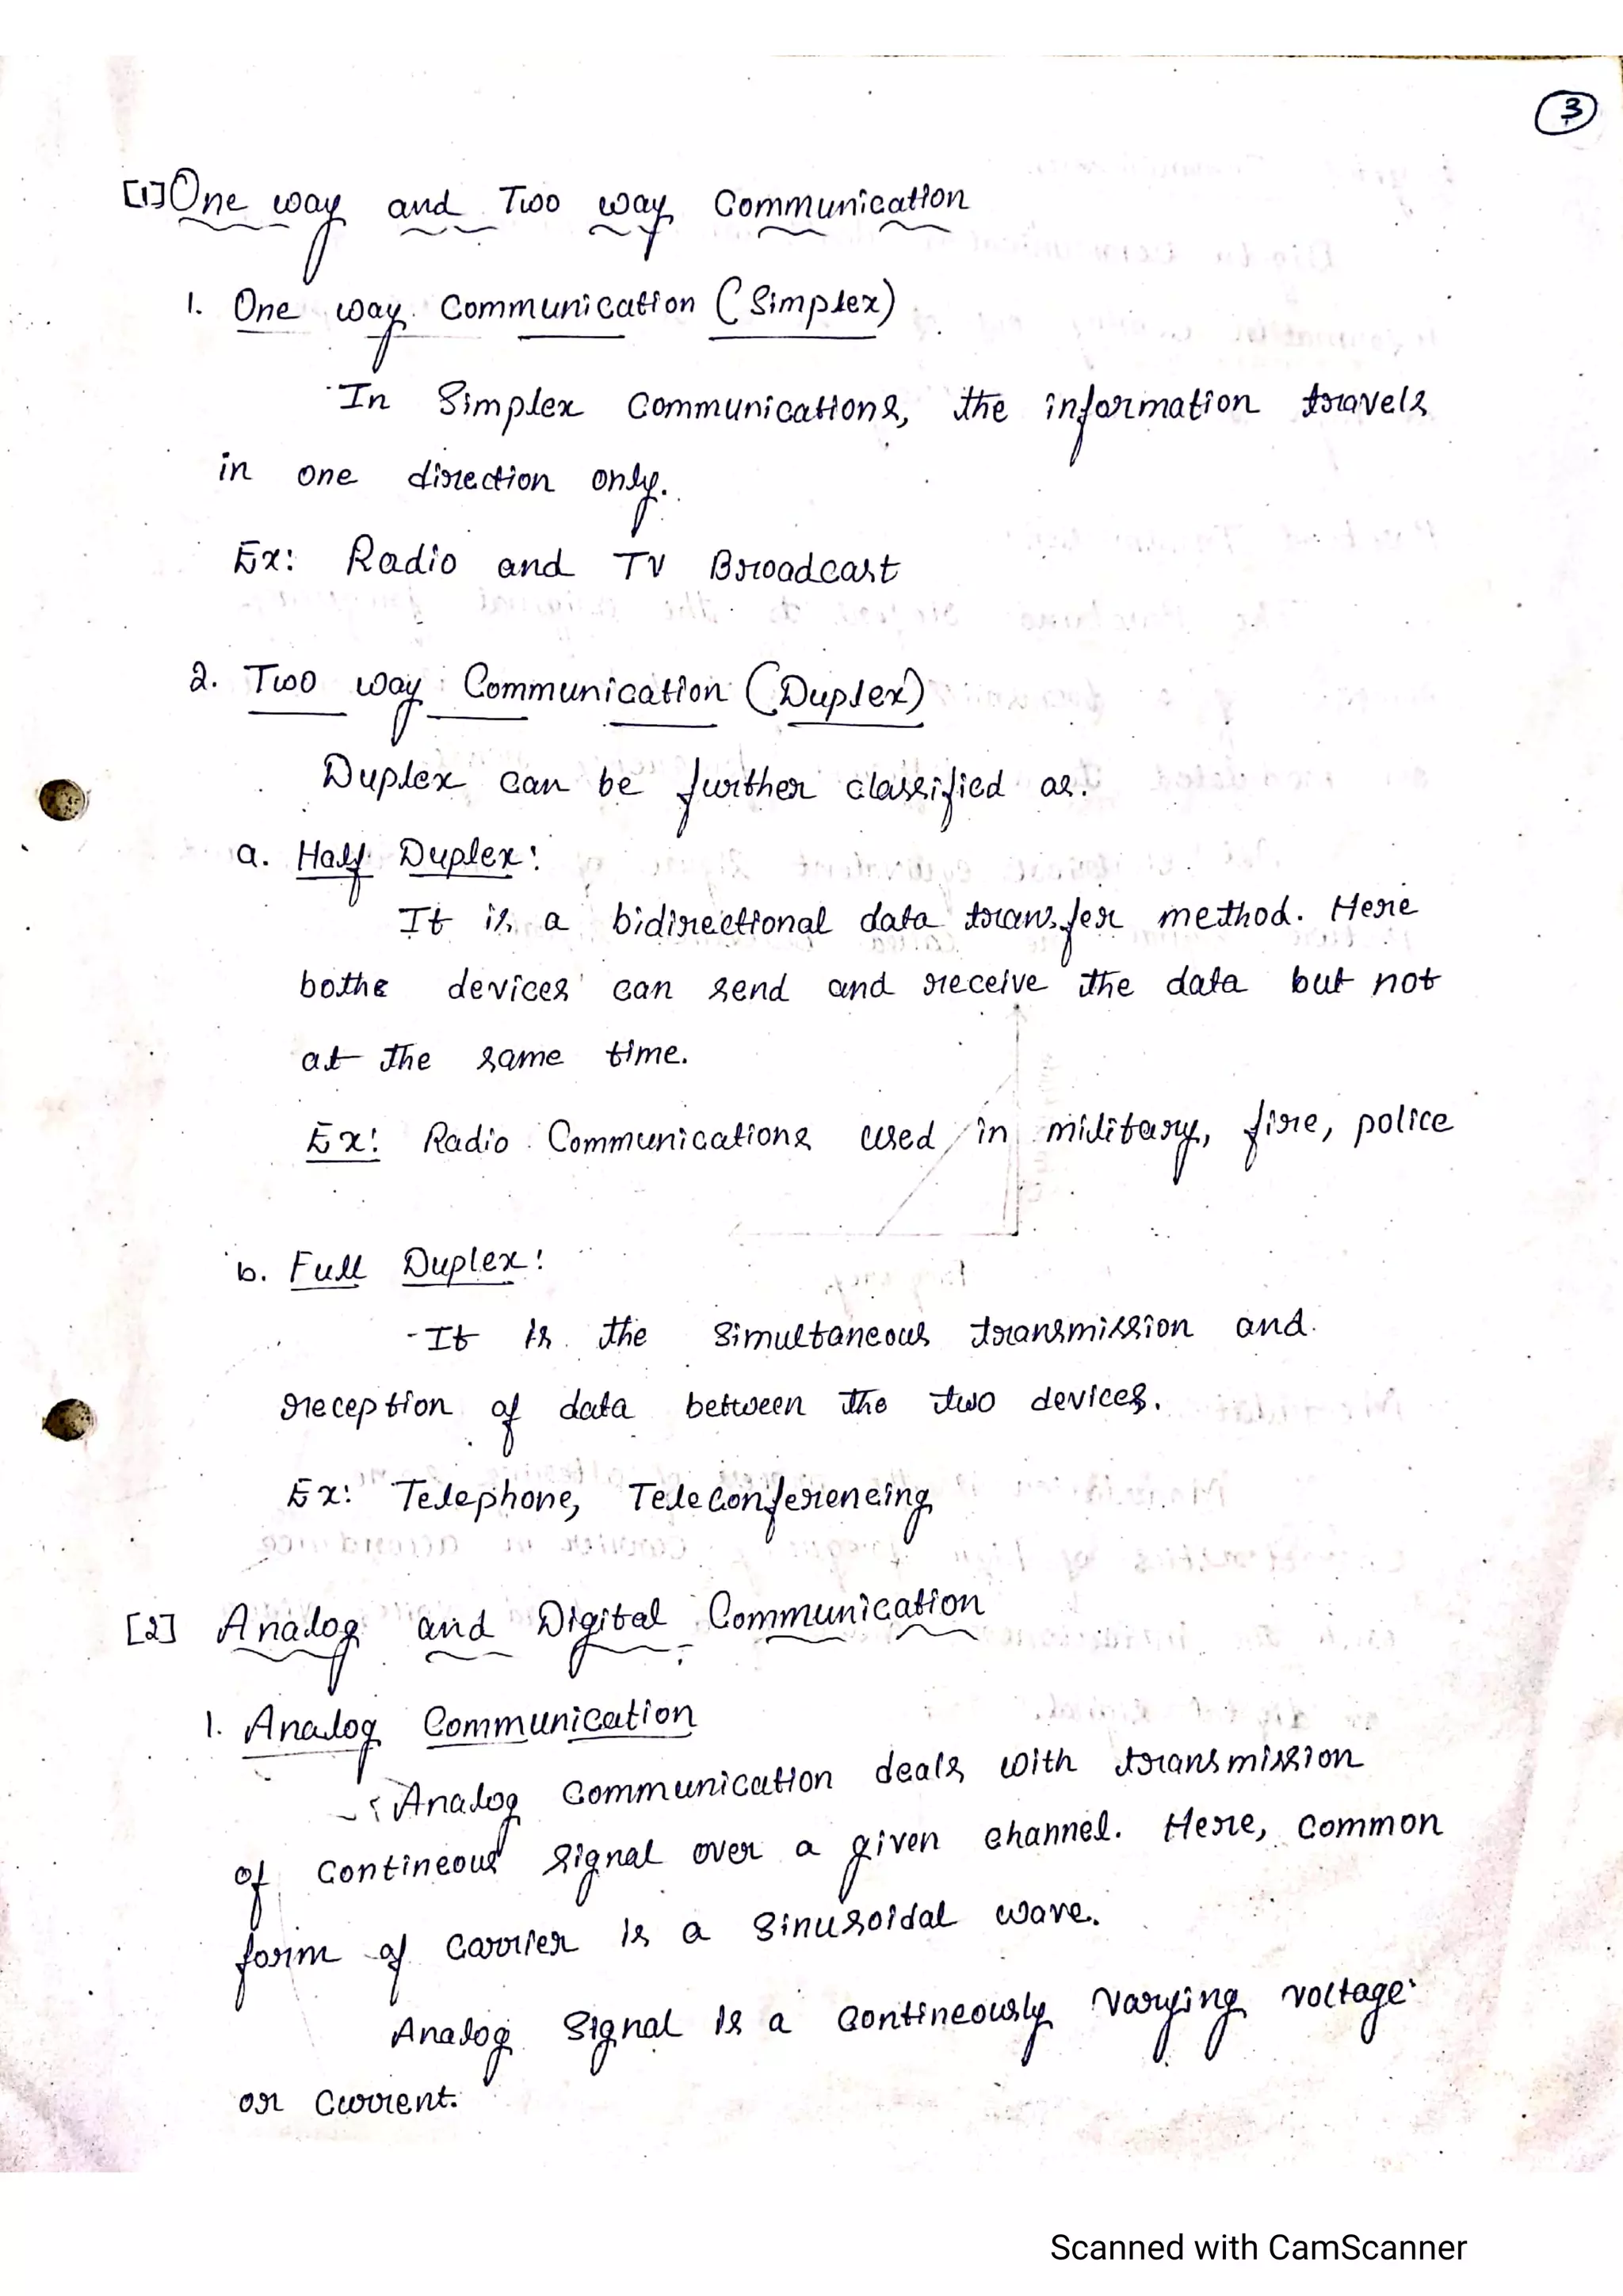 3
[1] One way and Two way Communication
1. One way Communication (Simplex)
In Simplex Communications, the information travels
in one direction only.
Ex: Radio and TV Broadcast
2. Two way Communication (Duplex)
Duplex can be further classified as.
a. Half Duplex:
It is a bidirectional data transfer method. Here
bothe devices can send and receive the data but not
at the same time.
Ex: Radio Communications used in military, fire, police
b. Full Duplex:
- It is the Simultaneous transmission and
reception of data between the two devices.
Ex: Telephone, Teleconferencing
[2] Analog and Digital Communication
1. Analog Communication
Analog Communication deals with transmission
of Contineous Signal over a given channel. Here, Common
form of Carrier is a Sinusoidal wave.
Analog Signal is a Contineously Varying voltage
or Current.
Scanned with CamScanner